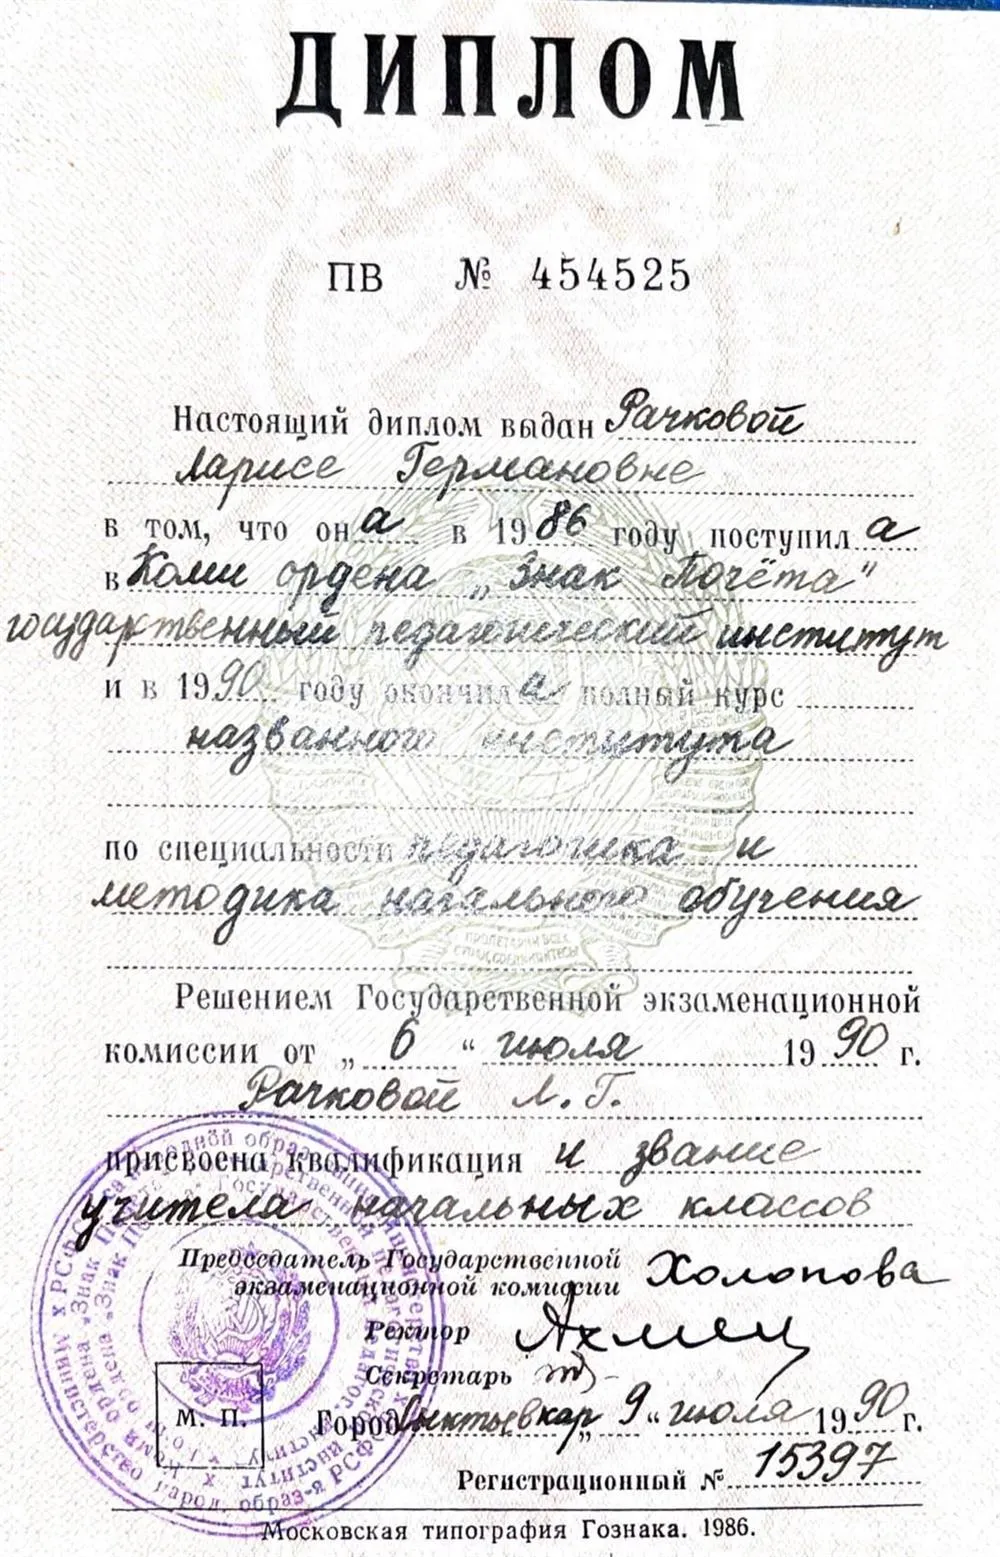 ДИПЛОМ
ПВ № 454525
Настоящий диплом выдан Рачковой
Ларисе Германовне
в том, что она в 1986 году поступила
в Коми ордена „Знак Почёта"
государственный педагогический институт
и в 1990 году окончила полный курс
названного института
по специальности педагогика и
методика начального обучения
Решением Государственной экзаменационной
комиссии от „ 6 “ июля 1990 г.
Рачковой Л. Г.
присвоена квалификация и звание
учителя начальных классов
Председатель Государственной
экзаменационной комиссии Холопова
Ректор
Секретарь
М. П.
Город Сыктывкар „ 9 “ июля 1990 г.
Регистрационный № 15397
Московская типография Гознака. 1986.